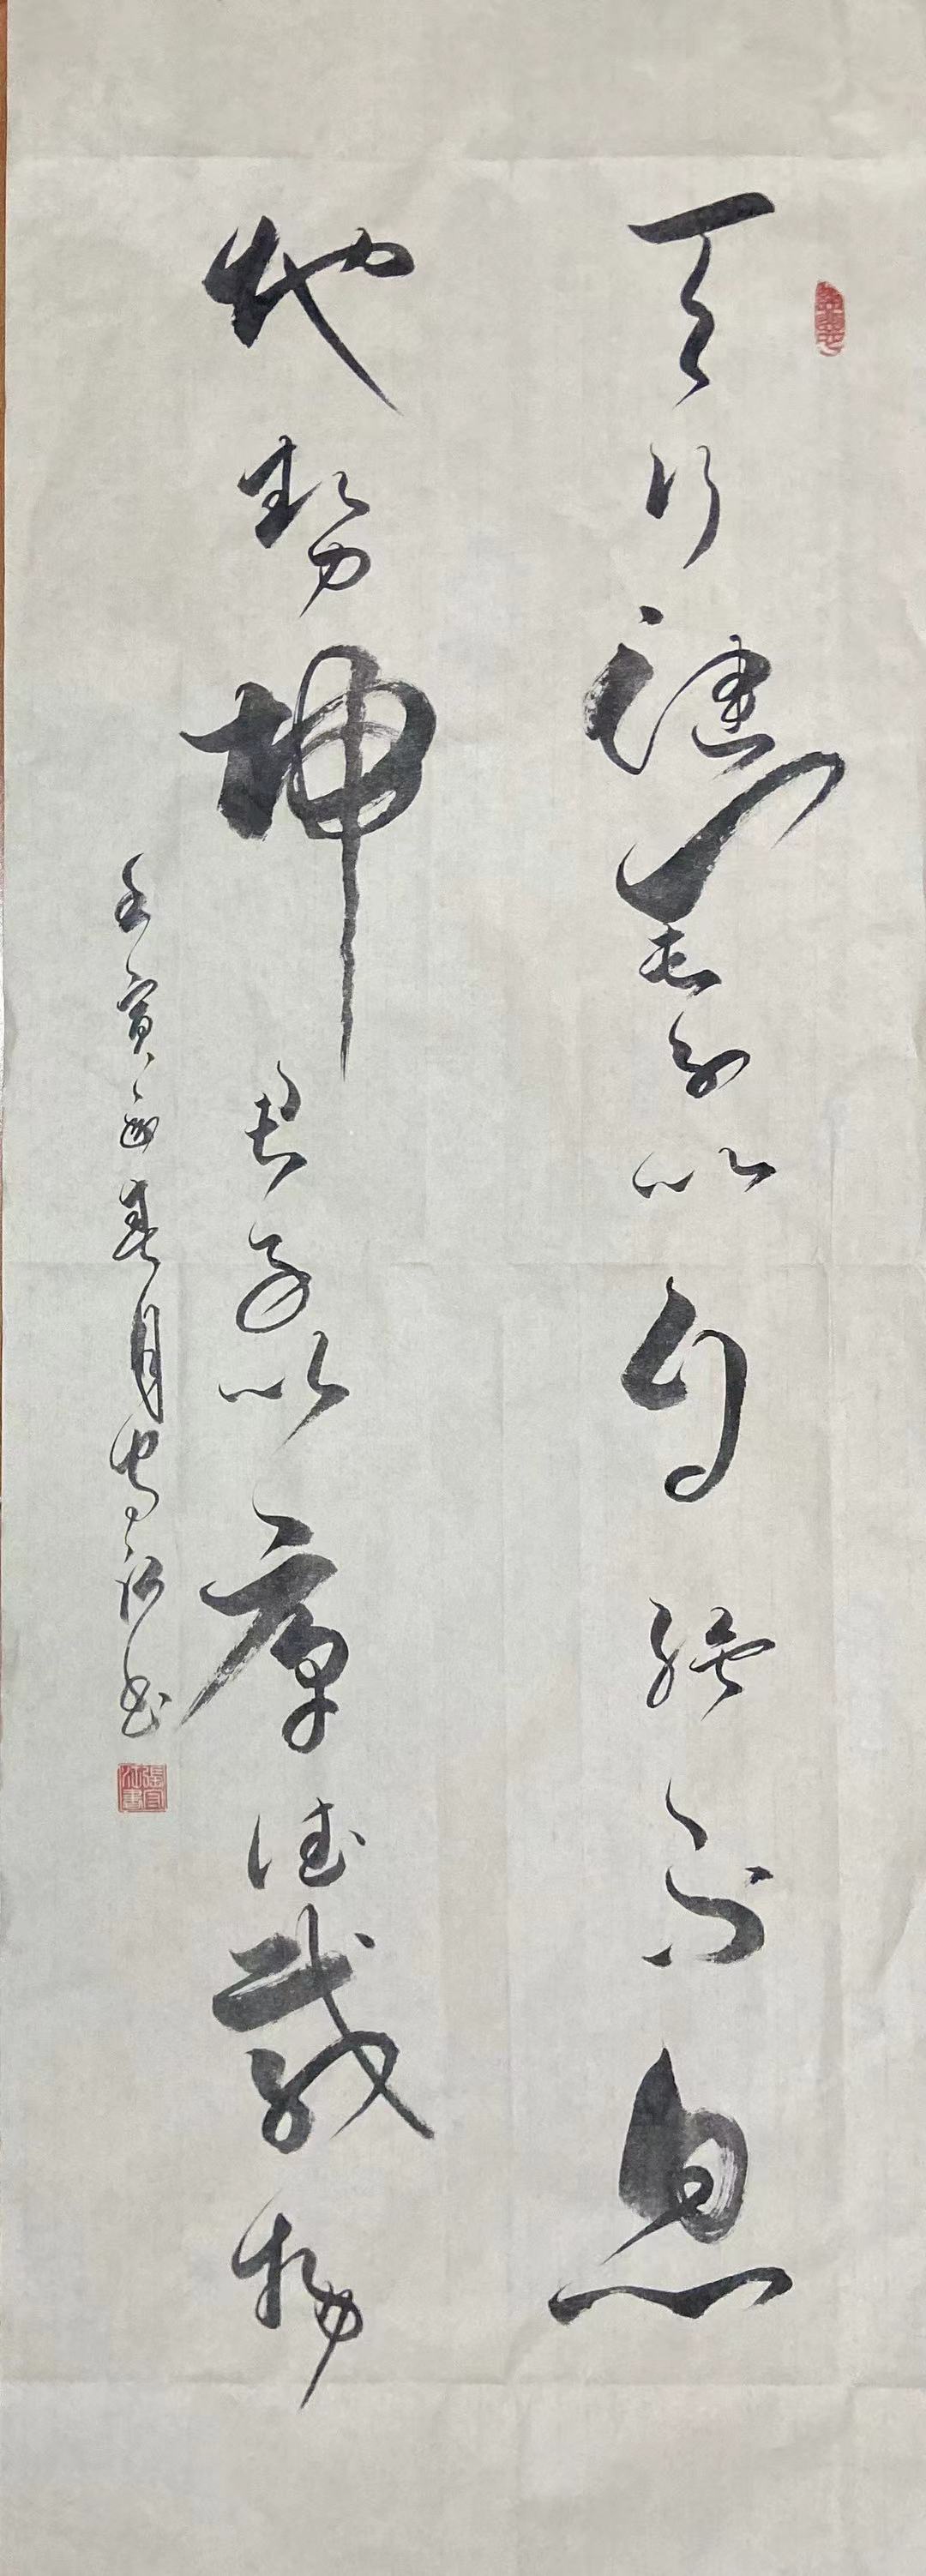 天行健君子以自强不息
地势坤君子以厚德载物
壬寅年春月官江书